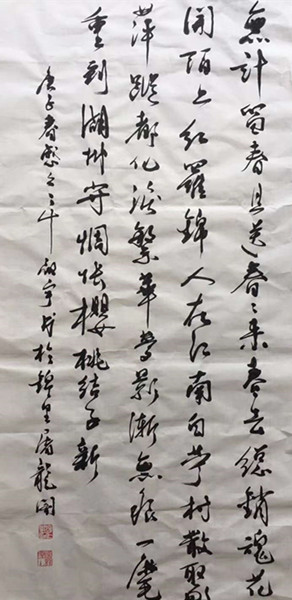 無計留春且送春春來春去總銷魂花
開陌上紅羅錦人在江南白苧村散聚
萍蹤都化淚繁華鶯影漸無痕一麾
重到湖州守惆悵櫻桃結子新
庚子春感之二十 於錦里濤龍閣